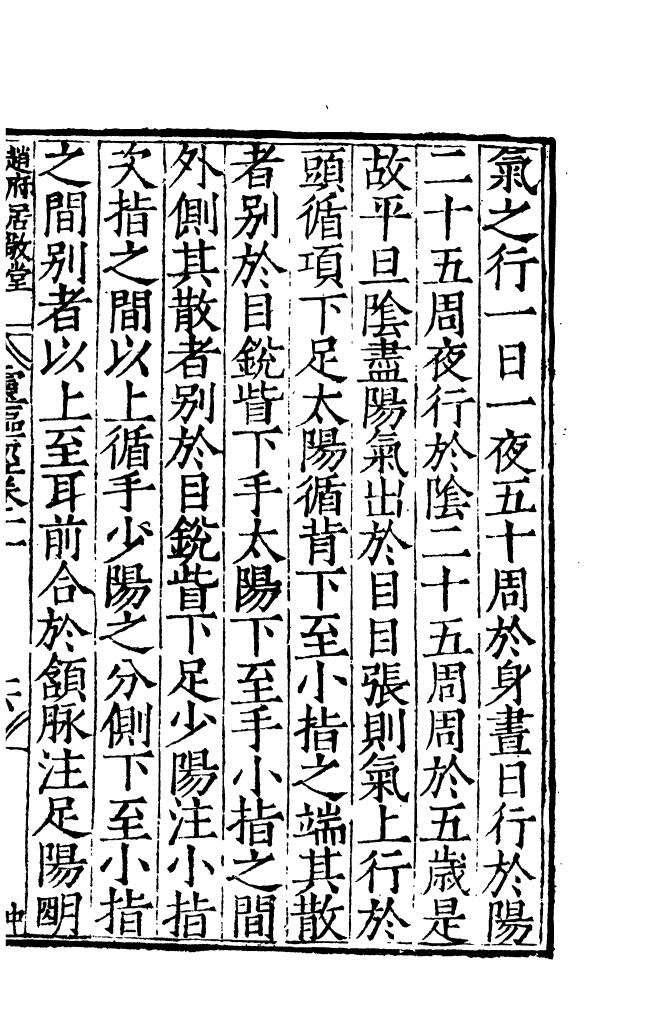 氣之行一日一夜五十周於身晝日行於陽
二十五周夜行於陰二十五周周於五歲是
故平旦陰盡陽氣出於目目張則氣上行於
頭循項下足太陽循背下至小指之端其散
者别於目銳眥下手太陽下至手小指之間
外側其散者别於目銳眥下足少陽注小指
次指之間以上循手少陽之分側下至小指
之間别者以上至耳前合於頷脉注足陽明
趙府居敬堂